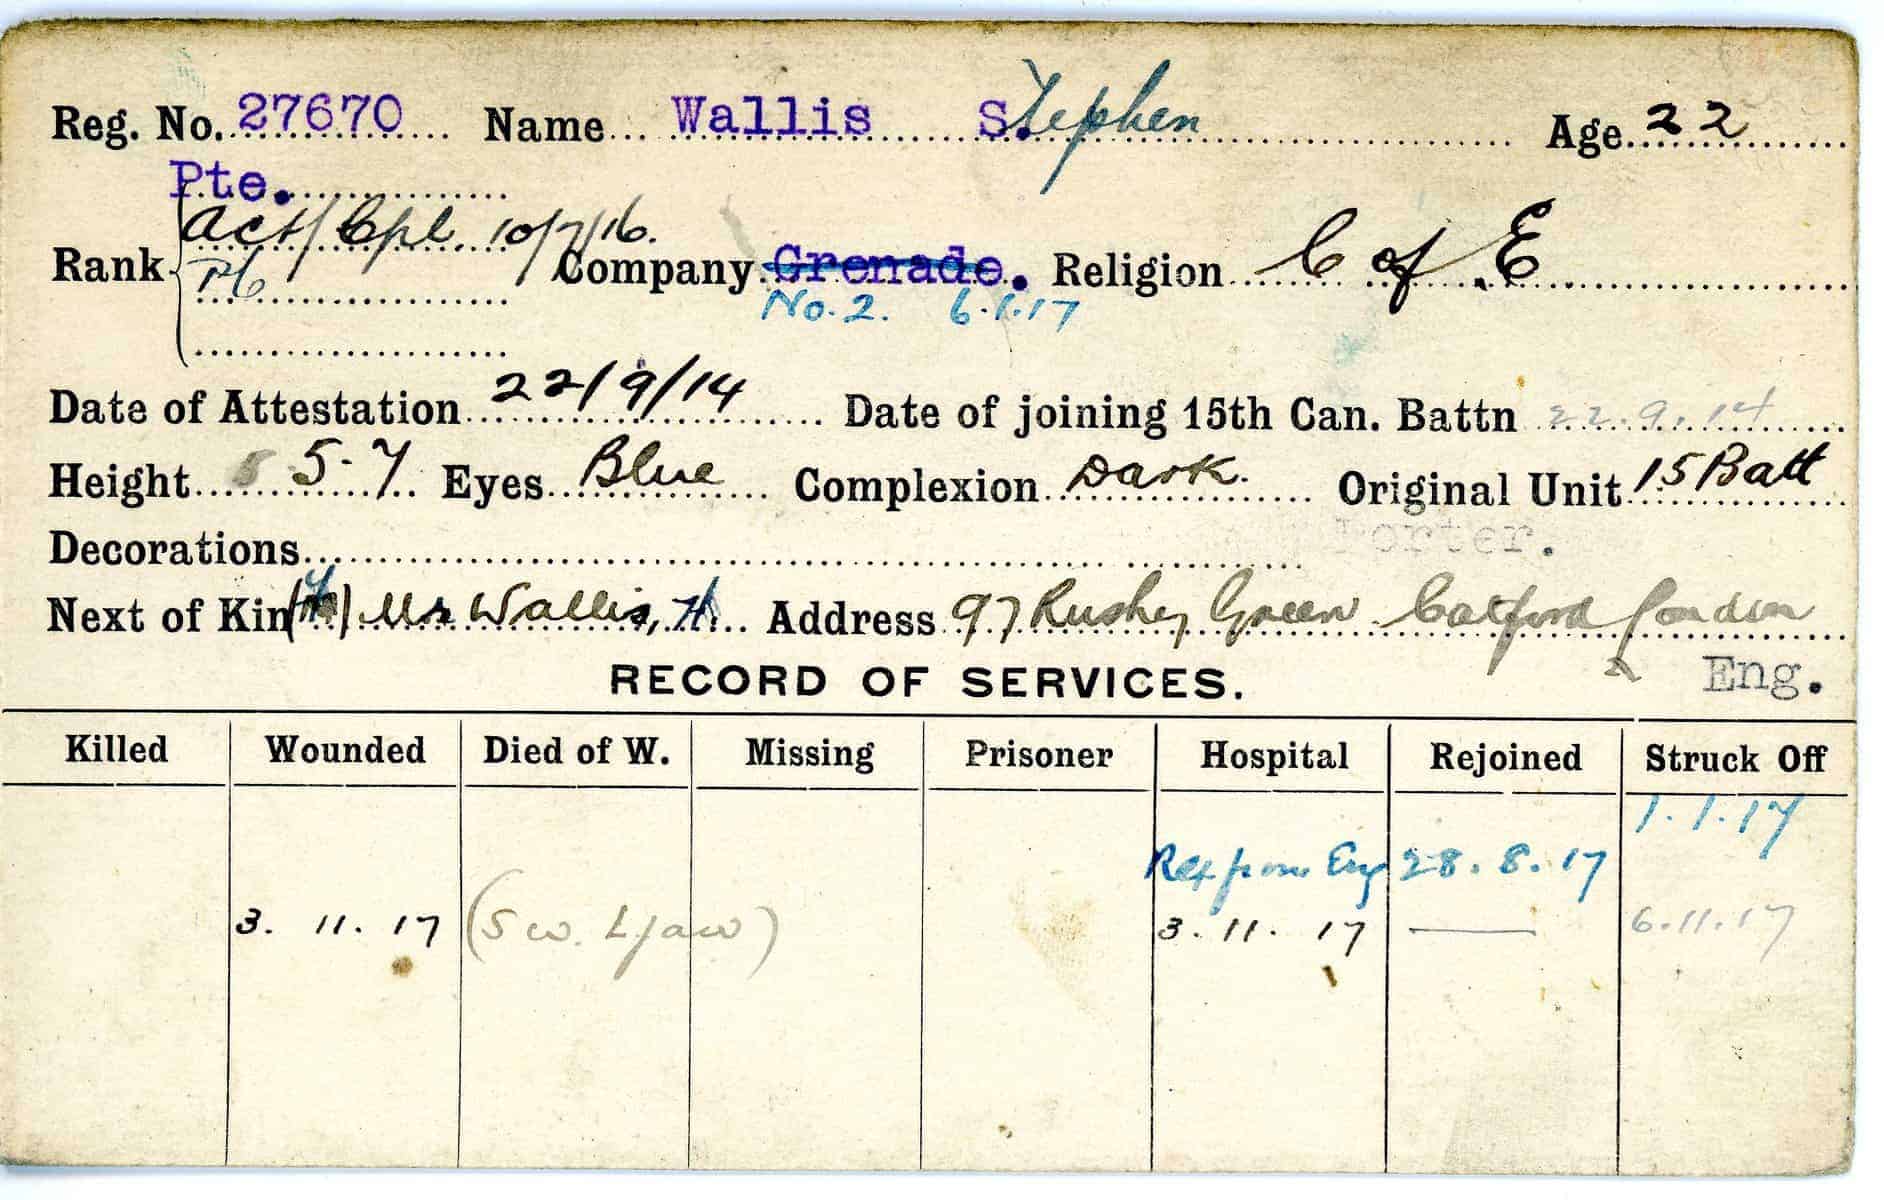 Reg. No. 27670 Name Wallis Stephen Age 22
Pte.
Act/Cpl. 10/7/16.
Rank Company Grenade. Religion C of E
Pte No. 2. 6.1.17
Date of Attestation 22/9/14 Date of joining 15th Can. Battn 22.9.14
Height 5-7 Eyes Blue Complexion Dark. Original Unit 15 Batt
Porter.
Decorations
Next of Kin Mr Wallis, H. Address 97 Rushey Green Catford London
RECORD OF SERVICES. Eng.
Killed Wounded Died of W. Missing Prisoner Hospital Rejoined Struck Off
1.1.17
from Eng 28.8.17
3.11.17 (S w. L jaw) 3.11.17 — 6.11.17